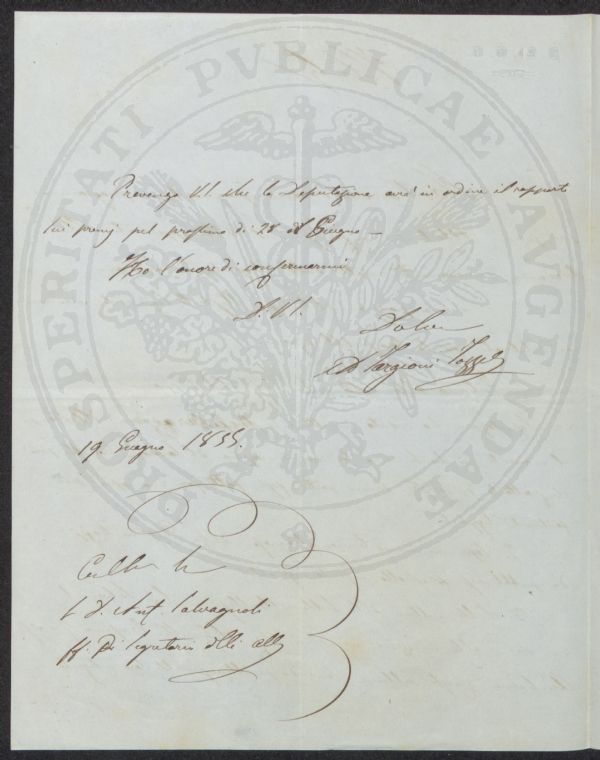 PROSPERITATI PVBLICAE AVGENDAE
Prevengo V.S. che la Deputazione avrà in ordine il rapporto
sui premj pel prossimo dì 28 di Giugno —
Ho l'onore di confermarmi
D. V.S.
Targioni Tozzetti
19. Giugno 1855.
S. D. Ant Salvagnoli
ff. di Segretario